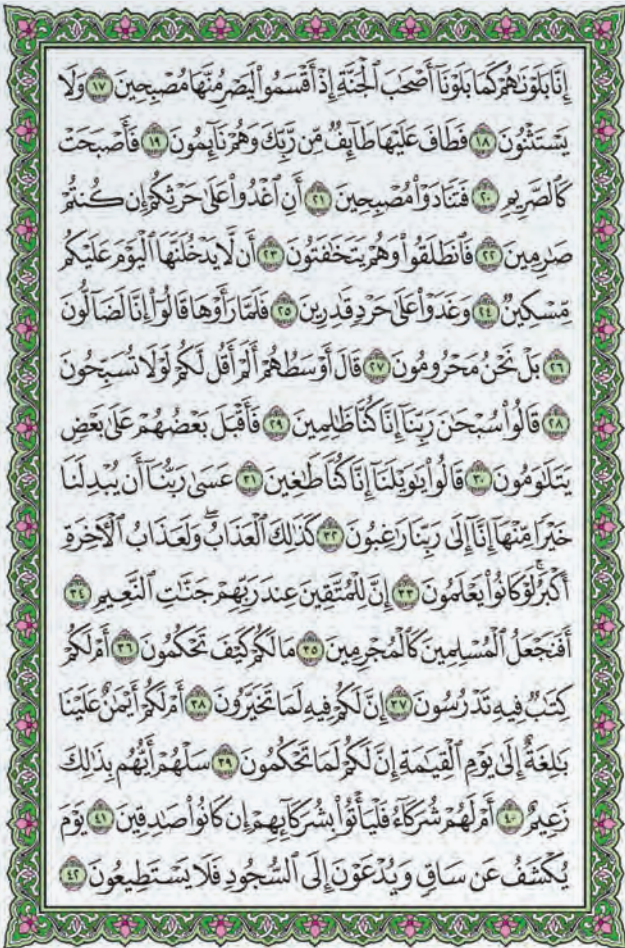 إِنَّا بَلَوْنَٰهُمْ كَمَا بَلَوْنَآ أَصْحَٰبَ ٱلْجَنَّةِ إِذْ أَقْسَمُوا۟ لَيَصْرِمُنَّهَا مُصْبِحِينَ ١٧ وَلَا
يَسْتَثْنُونَ ١٨ فَطَافَ عَلَيْهَا طَآئِفٌ مِّن رَّبِّكَ وَهُمْ نَآئِمُونَ ١٩ فَأَصْبَحَتْ
كَٱلصَّرِيمِ ٢٠ فَتَنَادَوْا۟ مُصْبِحِينَ ٢١ أَنِ ٱغْدُوا۟ عَلَىٰ حَرْثِكُمْ إِن كُنتُمْ
صَٰرِمِينَ ٢٢ فَٱنطَلَقُوا۟ وَهُمْ يَتَخَٰفَتُونَ ٢٣ أَن لَّا يَدْخُلَنَّهَا ٱلْيَوْمَ عَلَيْكُم
مِّسْكِينٌ ٢٤ وَغَدَوْا۟ عَلَىٰ حَرْدٍ قَٰدِرِينَ ٢٥ فَلَمَّا رَأَوْهَا قَالُوٓا۟ إِنَّا لَضَآلُّونَ
٢٦ بَلْ نَحْنُ مَحْرُومُونَ ٢٧ قَالَ أَوْسَطُهُمْ أَلَمْ أَقُل لَّكُمْ لَوْلَا تُسَبِّحُونَ
٢٨ قَالُوا۟ سُبْحَٰنَ رَبِّنَآ إِنَّا كُنَّا ظَٰلِمِينَ ٢٩ فَأَقْبَلَ بَعْضُهُمْ عَلَىٰ بَعْضٍ
يَتَلَٰوَمُونَ ٣٠ قَالُوا۟ يَٰوَيْلَنَآ إِنَّا كُنَّا طَٰغِينَ ٣١ عَسَىٰ رَبُّنَآ أَن يُبْدِلَنَا
خَيْرًا مِّنْهَآ إِنَّآ إِلَىٰ رَبِّنَا رَٰغِبُونَ ٣٢ كَذَٰلِكَ ٱلْعَذَابُ ۖ وَلَعَذَابُ ٱلْءَاخِرَةِ
أَكْبَرُ ۚ لَوْ كَانُوا۟ يَعْلَمُونَ ٣٣ إِنَّ لِلْمُتَّقِينَ عِندَ رَبِّهِمْ جَنَّٰتِ ٱلنَّعِيمِ ٣٤
أَفَنَجْعَلُ ٱلْمُسْلِمِينَ كَٱلْمُجْرِمِينَ ٣٥ مَا لَكُمْ كَيْفَ تَحْكُمُونَ ٣٦ أَمْ لَكُمْ
كِتَٰبٌ فِيهِ تَدْرُسُونَ ٣٧ إِنَّ لَكُمْ فِيهِ لَمَا تَخَيَّرُونَ ٣٨ أَمْ لَكُمْ أَيْمَٰنٌ عَلَيْنَا
بَٰلِغَةٌ إِلَىٰ يَوْمِ ٱلْقِيَٰمَةِ ۙ إِنَّ لَكُمْ لَمَا تَحْكُمُونَ ٣٩ سَلْهُمْ أَيُّهُم بِذَٰلِكَ
زَعِيمٌ ٤٠ أَمْ لَهُمْ شُرَكَآءُ فَلْيَأْتُوا۟ بِشُرَكَآئِهِمْ إِن كَانُوا۟ صَٰدِقِينَ ٤١ يَوْمَ
يُكْشَفُ عَن سَاقٍ وَيُدْعَوْنَ إِلَى ٱلسُّجُودِ فَلَا يَسْتَطِيعُونَ ٤٢